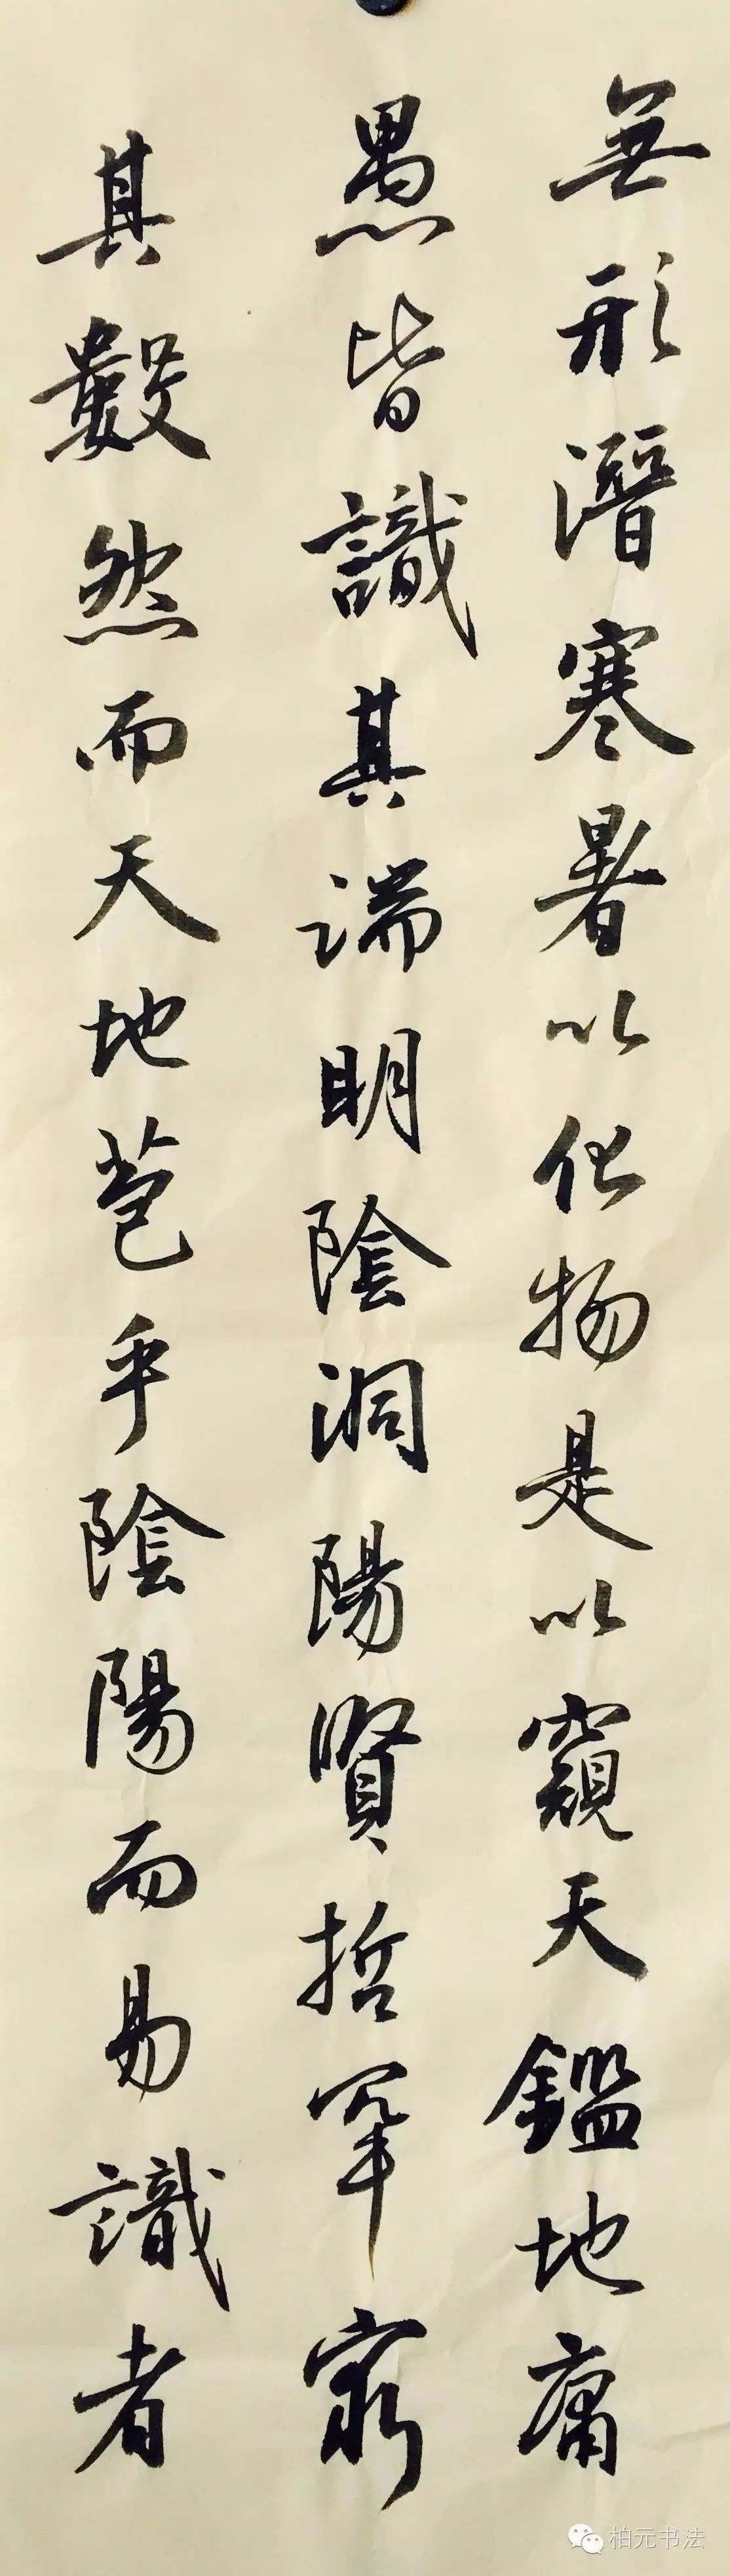 無形潛寒暑以化物是以窺天鑑地庸
愚皆識其端明陰洞陽賢哲罕窮
其數然而天地苞乎陰陽而易識者
柏元书法